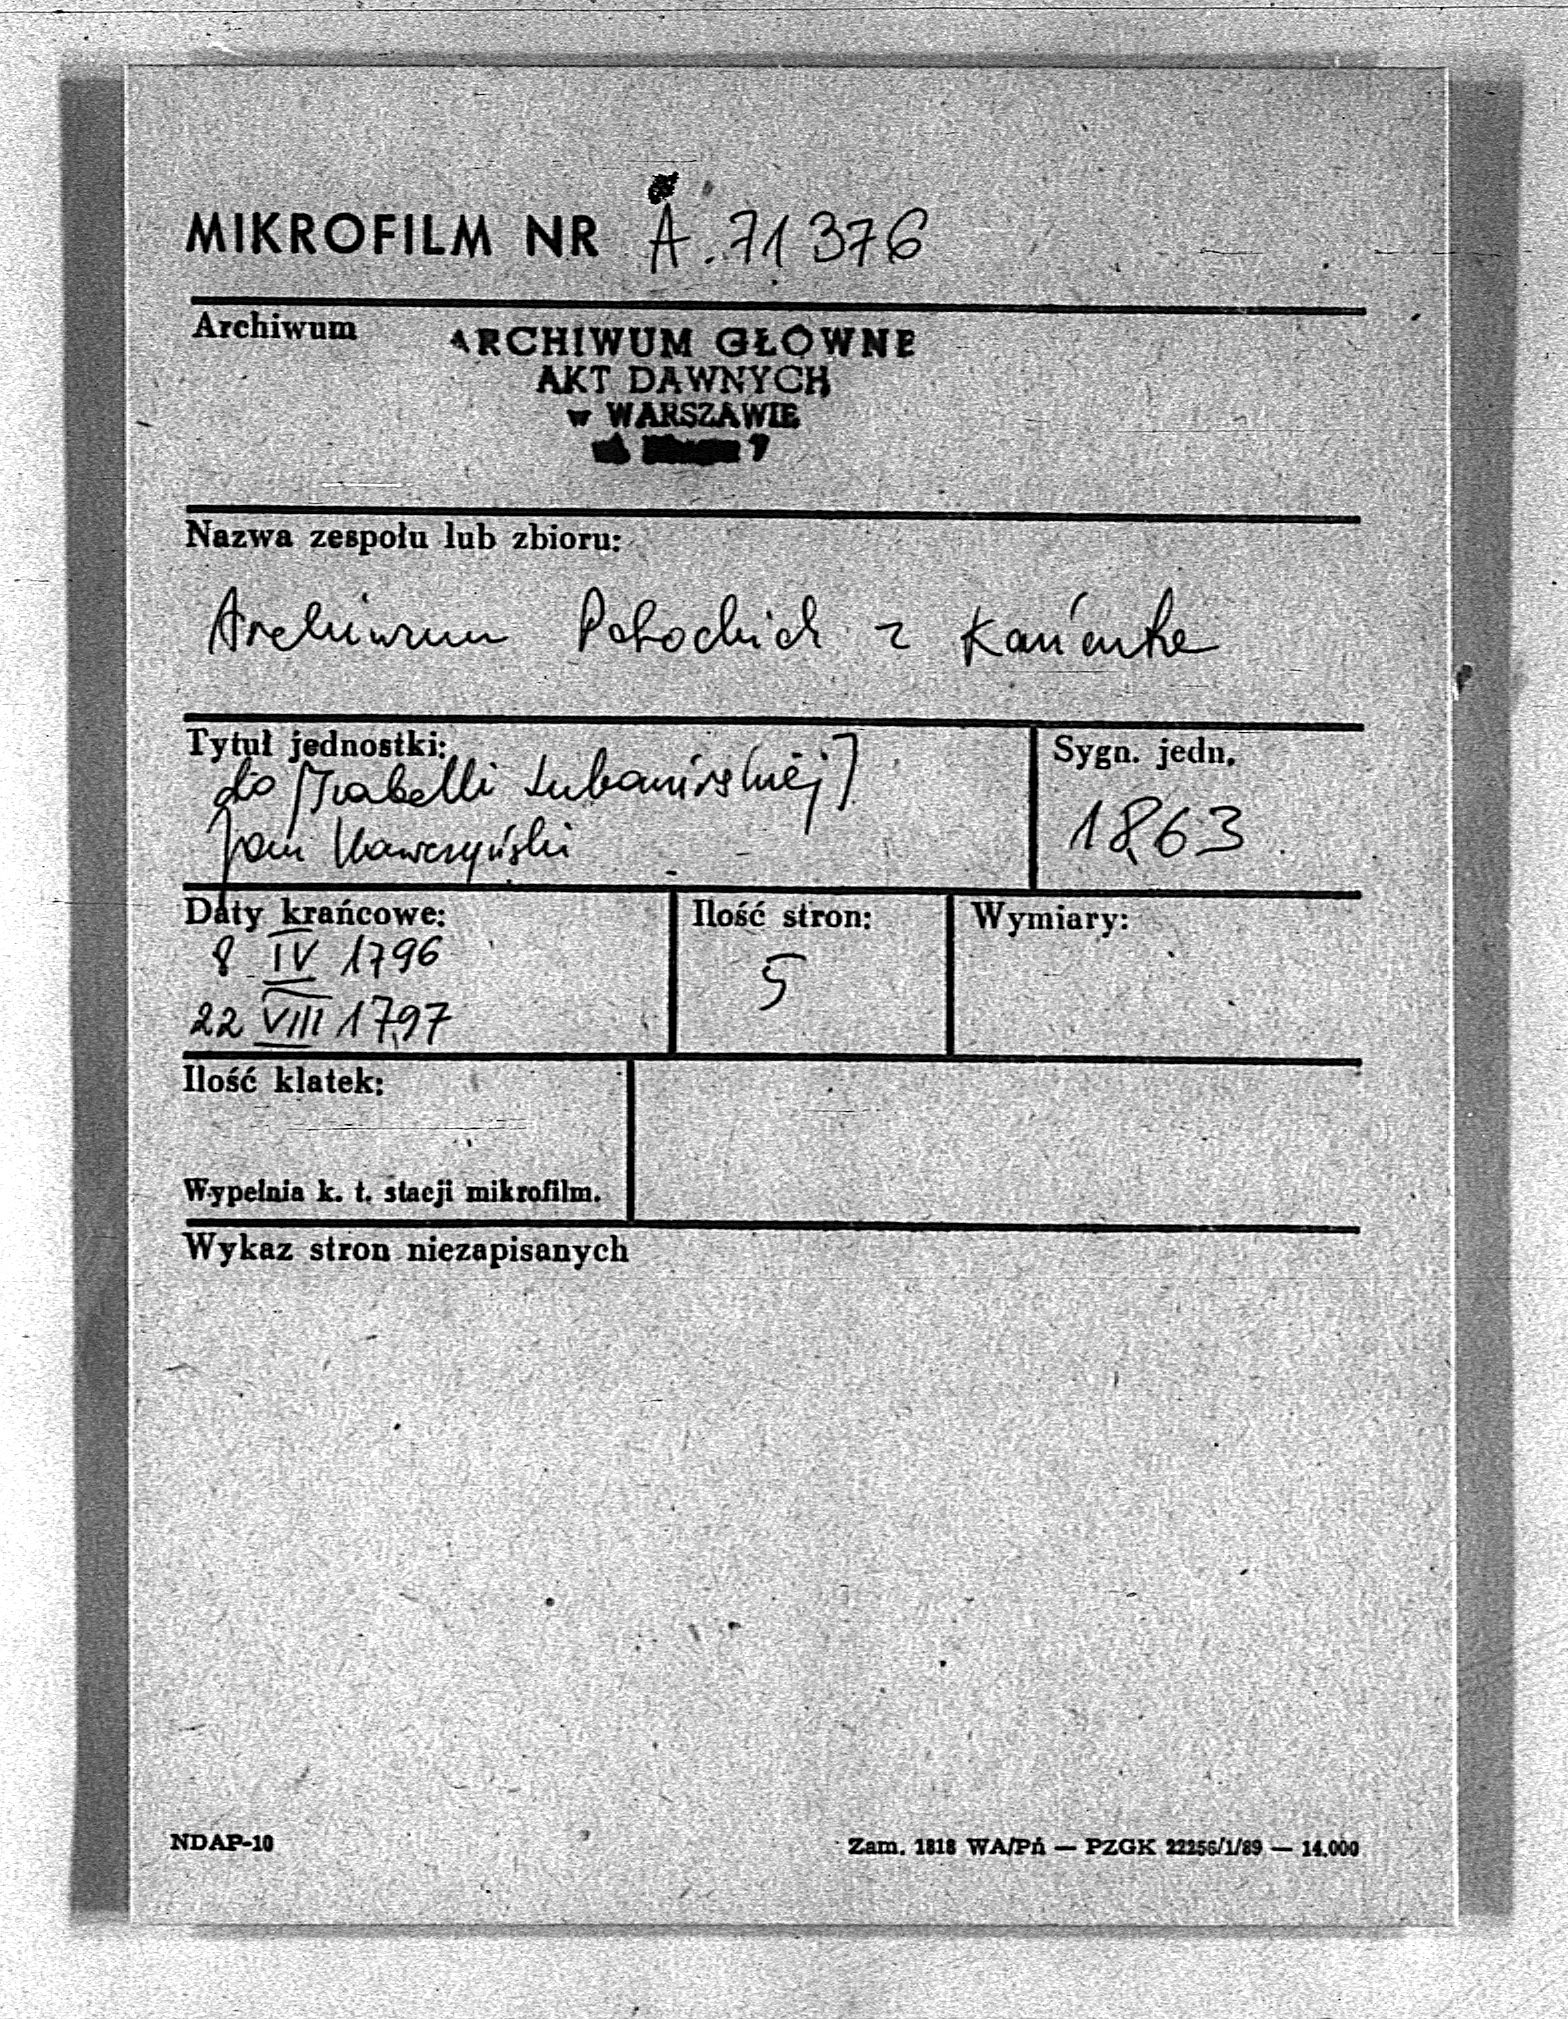 MIKROFILM NR A. 71376
Archiwum
ARCHIWUM GŁÓWNE
AKT DAWNYCH
w WARSZAWIE
7
Nazwa zespołu lub zbioru:
Archiwum Potockich z Łańcuta
Tytuł jednostki:
do [Izabelli Lubomirskiej]
Jan
Sygn. jedn.
1863
Daty krańcowe:
8 IV 1796
22 VIII 1797
Ilość stron:
5
Wymiary:
Ilość klatek:
Wypełnia k. t. stacji mikrofilm.
Wykaz stron niezapisanych
NDAP-10
Zam. 1818 WA/Pń — PZGK 22256/1/89 — 14.000